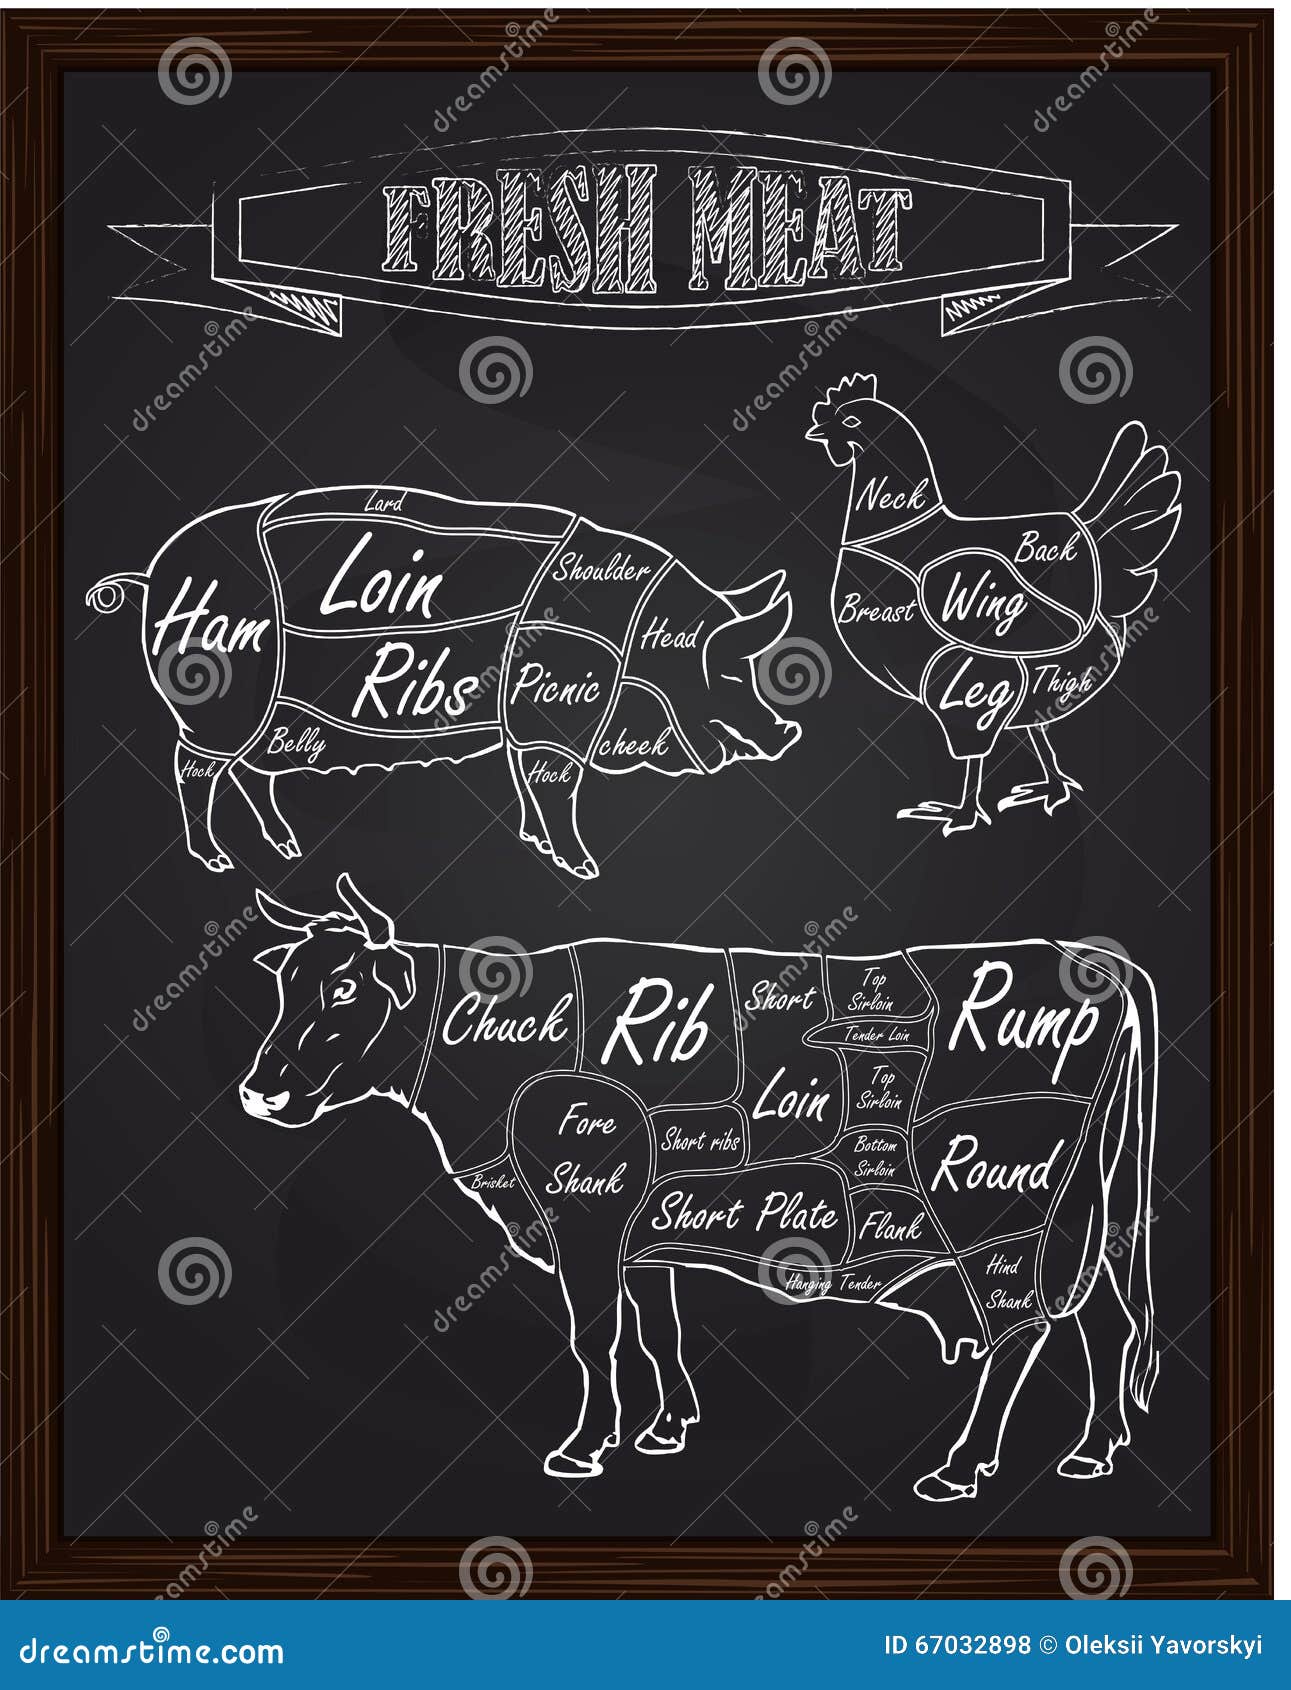 FRESH MEAT
Lard
Loin
Ham
Ribs
Belly
Hock
Shoulder
Head
Picnic
cheek
Hock
Neck
Back
Breast
Wing
Leg
Thigh
Chuck
Rib
Short
Loin
Top
Sirloin
Tender Loin
Top
Sirloin
Bottom
Sirloin
Rump
Round
Fore
Shank
Short ribs
Brisket
Short Plate
Flank
Hanging Tender
Hind
Shank
dreamstime
dreamstime
dreamstime
dreamstime
dreamstime
dreamstime
dreamstime
dreamstime
dreamstime
dreamstime
dreamstime
dreamstime
dreamstime.com
ID 67032898 © Oleksii Yavorskyi